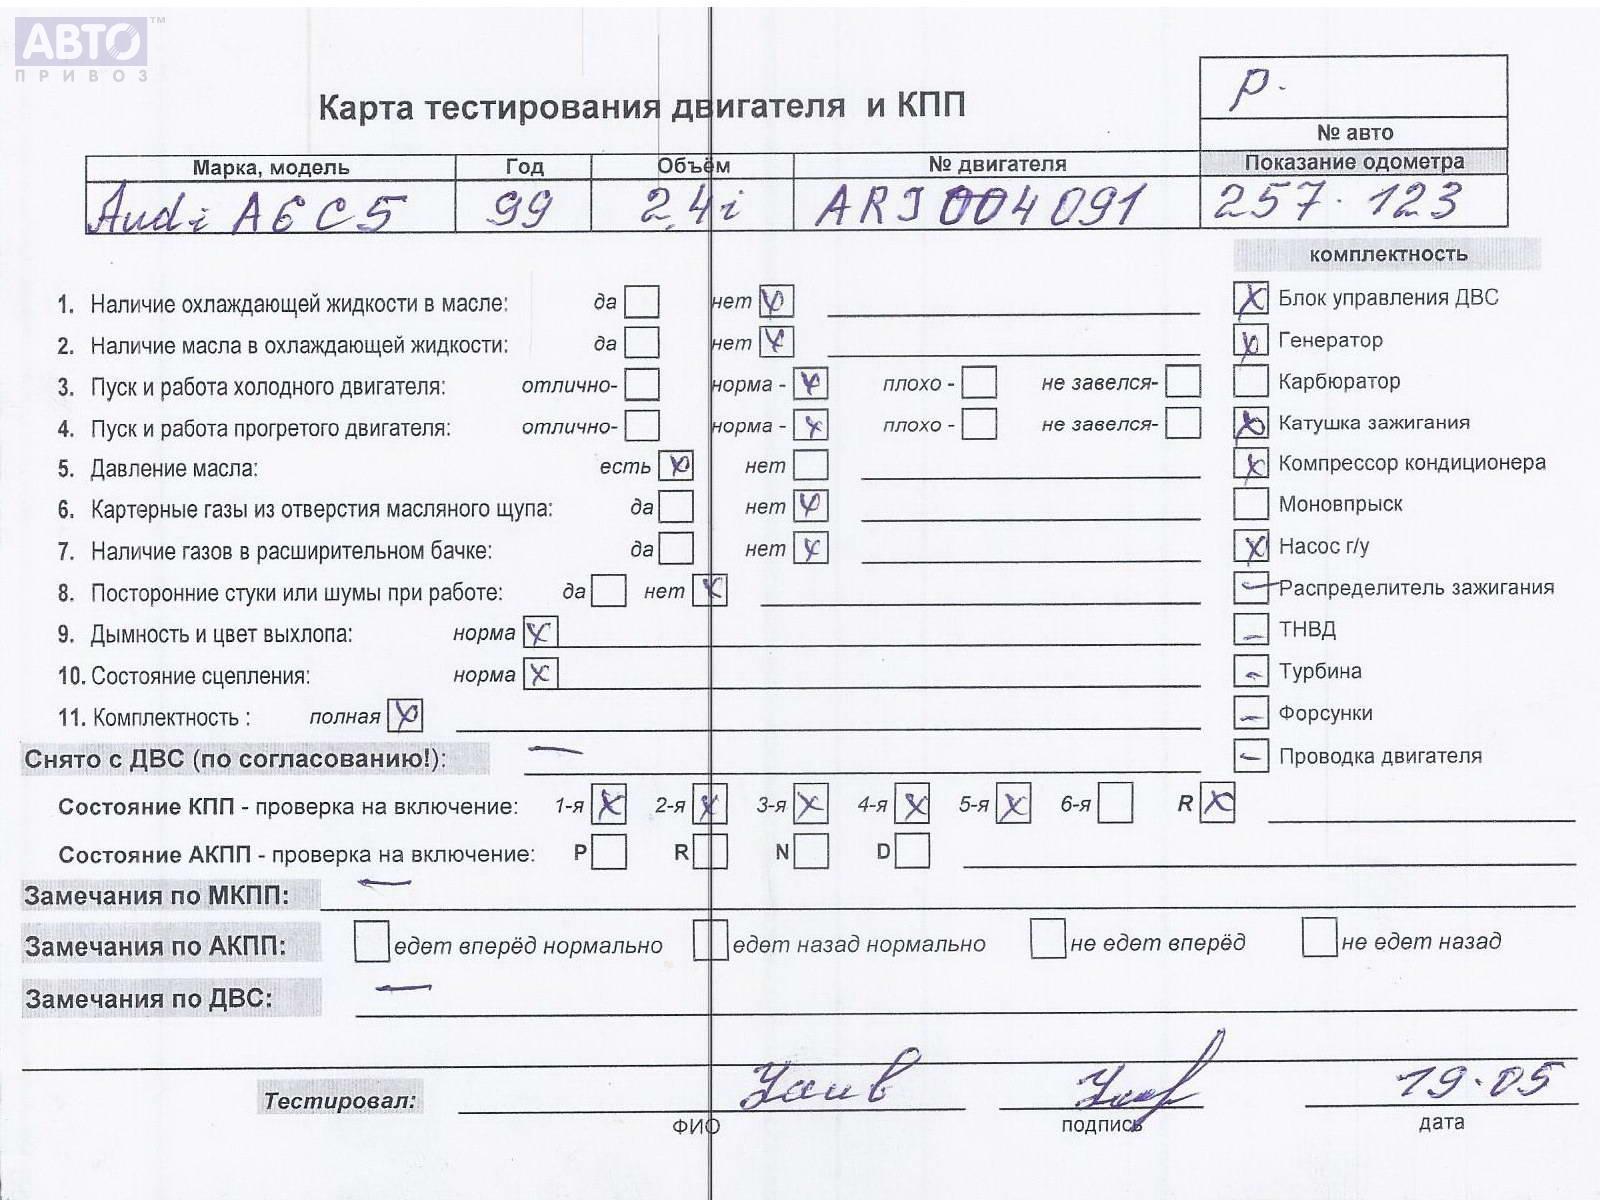 АВТО™
ПРИВОЗ
р.
Карта тестирования двигателя и КПП
№ авто
Марка, модель Год Объём № двигателя Показание одометра
Audi A6 C5 99 2,4i ARJ004091 257.123
комплектность
1. Наличие охлаждающей жидкости в масле: да нет
Блок управления ДВС
2. Наличие масла в охлаждающей жидкости: да нет
Генератор
3. Пуск и работа холодного двигателя: отлично- норма - плохо - не завелся-
Карбюратор
4. Пуск и работа прогретого двигателя: отлично- норма - плохо - не завелся-
Катушка зажигания
5. Давление масла: есть нет
Компрессор кондиционера
6. Картерные газы из отверстия масляного щупа: да нет
Моновпрыск
7. Наличие газов в расширительном бачке: да нет
Насос г/у
8. Посторонние стуки или шумы при работе: да нет
Распределитель зажигания
9. Дымность и цвет выхлопа: норма
ТНВД
10. Состояние сцепления: норма
Турбина
11. Комплектность : полная
Форсунки
Снято с ДВС (по согласованию!):
Проводка двигателя
Состояние КПП - проверка на включение: 1-я 2-я 3-я 4-я 5-я 6-я R
Состояние АКПП - проверка на включение: P R N D
Замечания по МКПП:
Замечания по АКПП: едет вперёд нормально едет назад нормально не едет вперёд не едет назад
Замечания по ДВС:
Тестировал: 19.05
ФИО подпись дата